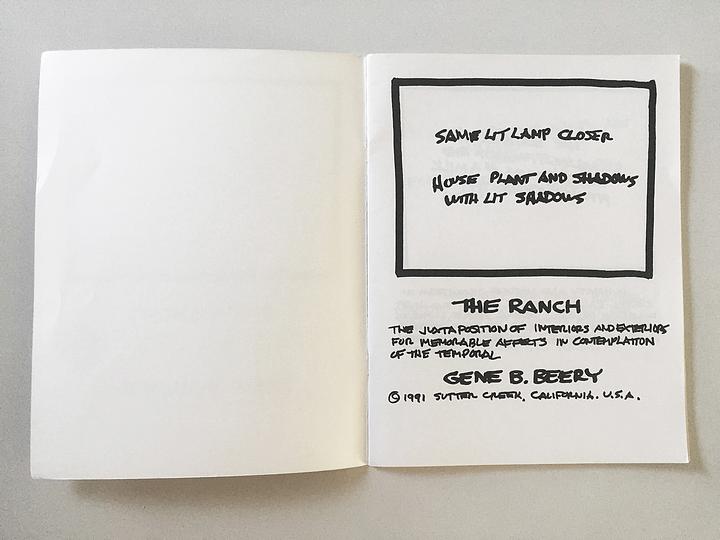 SAME LIT LAMP CLOSER
HOUSE PLANT AND SHADOWS
WITH LIT SHADOWS
THE RANCH
THE JUXTAPOSITION OF INTERIORS AND EXTERIORS
FOR MEMORABLE AFFECTS IN CONTEMPLATION
OF THE TEMPORAL
GENE B. BEERY
© 1991 SUTTER CREEK, CALIFORNIA. U.S.A.